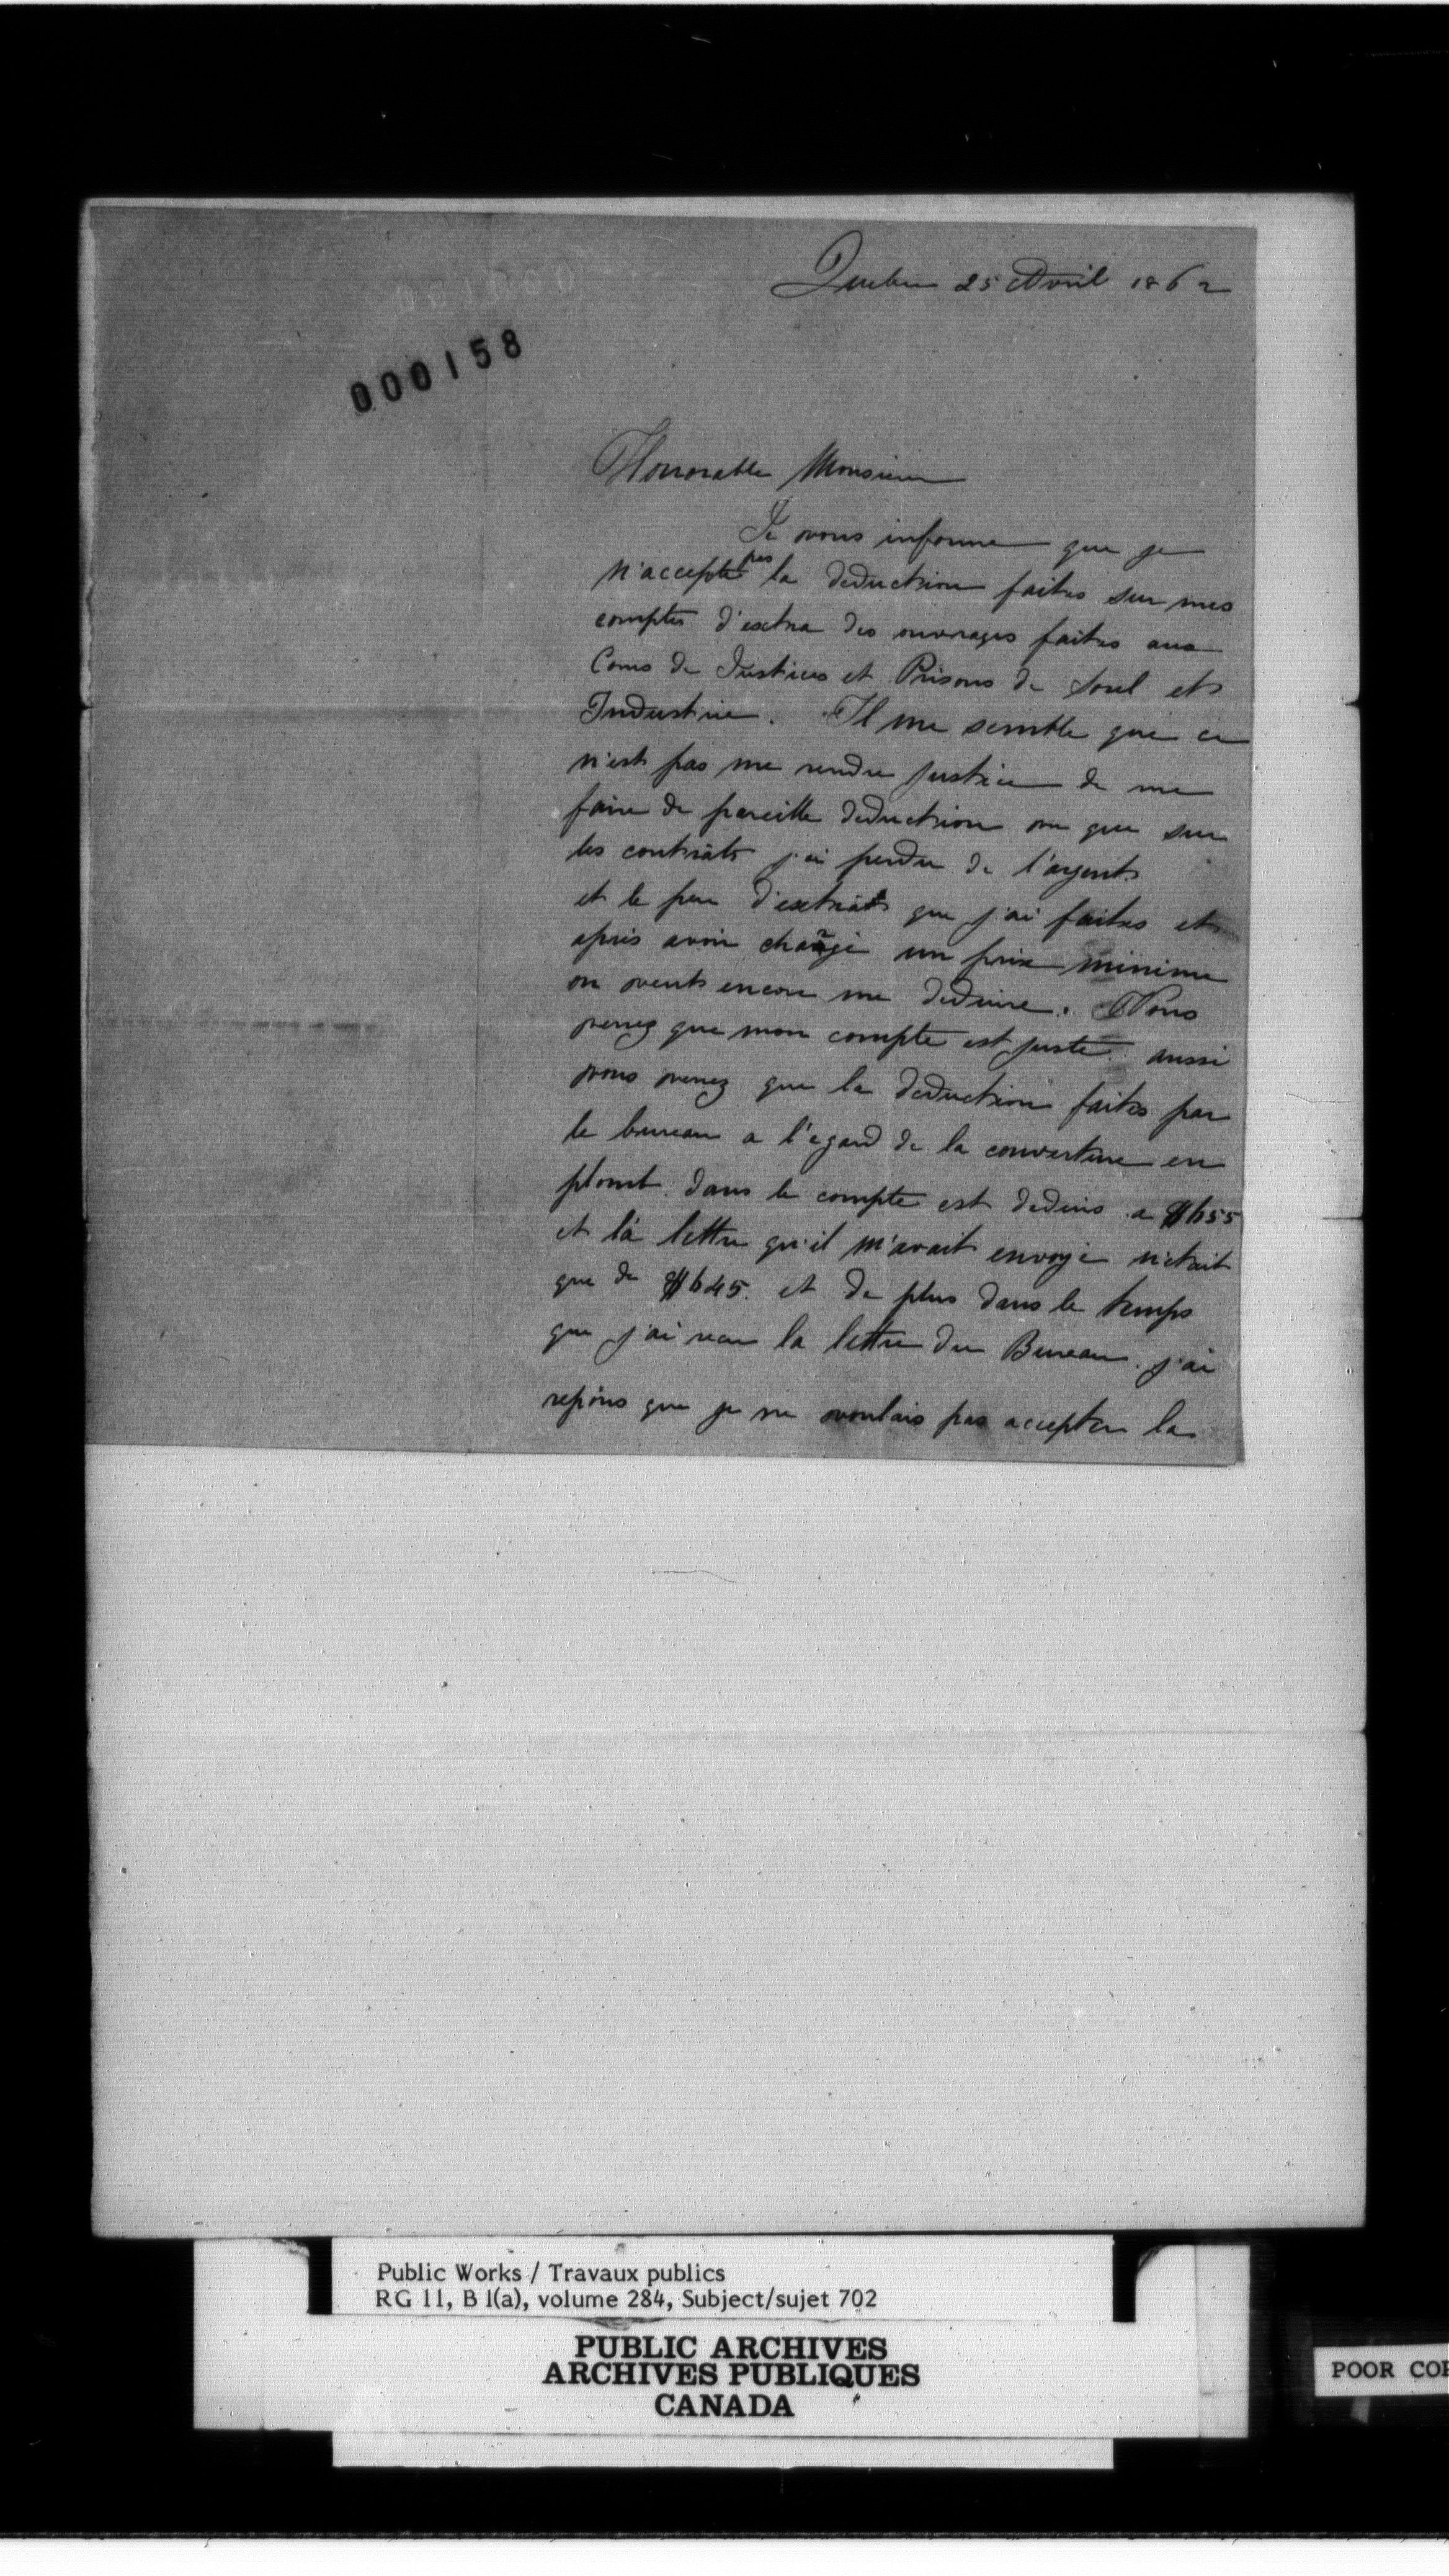 Quebec 25 Avril 1862
000158
Honorable Monsieur
Je vous informe que je
n'accepte pas la deduction faites sur mes
comptes d'extra des ouvrages faites aux
Cours de Justices et Prisons de Sorel et
Industrie. Il me semble que ce
n'est pas me rendre justice de me
faire de pareille deduction vu que sur
les contrats j'ai perdu de l'argent
et le peu d'extras que j'ai faites et
après avoir chargé un prix minime
on veut encore me deduire. Vous
verrez que mon compte est juste. aussi
vous verrez que la deduction faites par
le bureau a l'egard de la couverture en
plomb dans le compte est deduis a $655
et la lettre qu'il m'avait envoyé n'etait
que de $645. et de plus dans le temps
que j'ai recu la lettre du Bureau. j'ai
repons que je ne voulais pas accepter la
Public Works / Travaux publics
RG 11, B 1(a), volume 284, Subject/sujet 702
PUBLIC ARCHIVES
ARCHIVES PUBLIQUES
CANADA
POOR